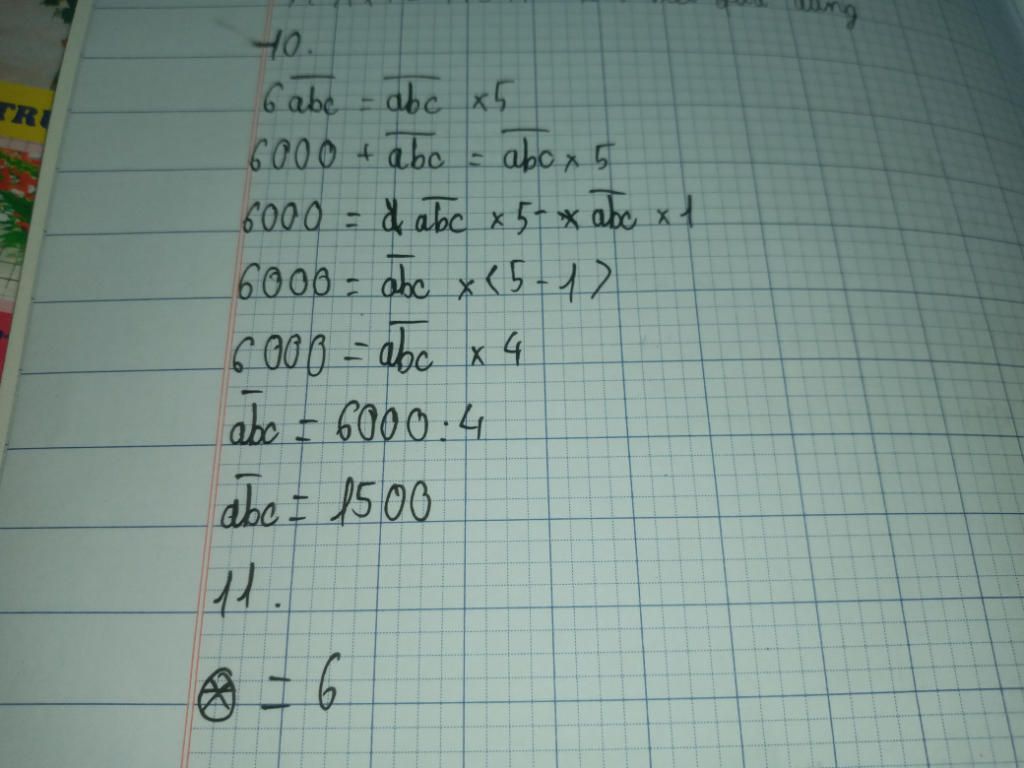 quả đúng
TRU
10.
6abc̅ = a̅b̅c̅ ×5
6000 + a̅b̅c̅ = a̅b̅c̅ × 5
6000 = a̅b̅c̅ × 5 - a̅b̅c̅ × 1
6000 = a̅b̅c̅ × (5 - 1)
6000 = a̅b̅c̅ × 4
a̅b̅c̅ = 6000 : 4
a̅b̅c̅ = 1500
11.
⊛ = 6